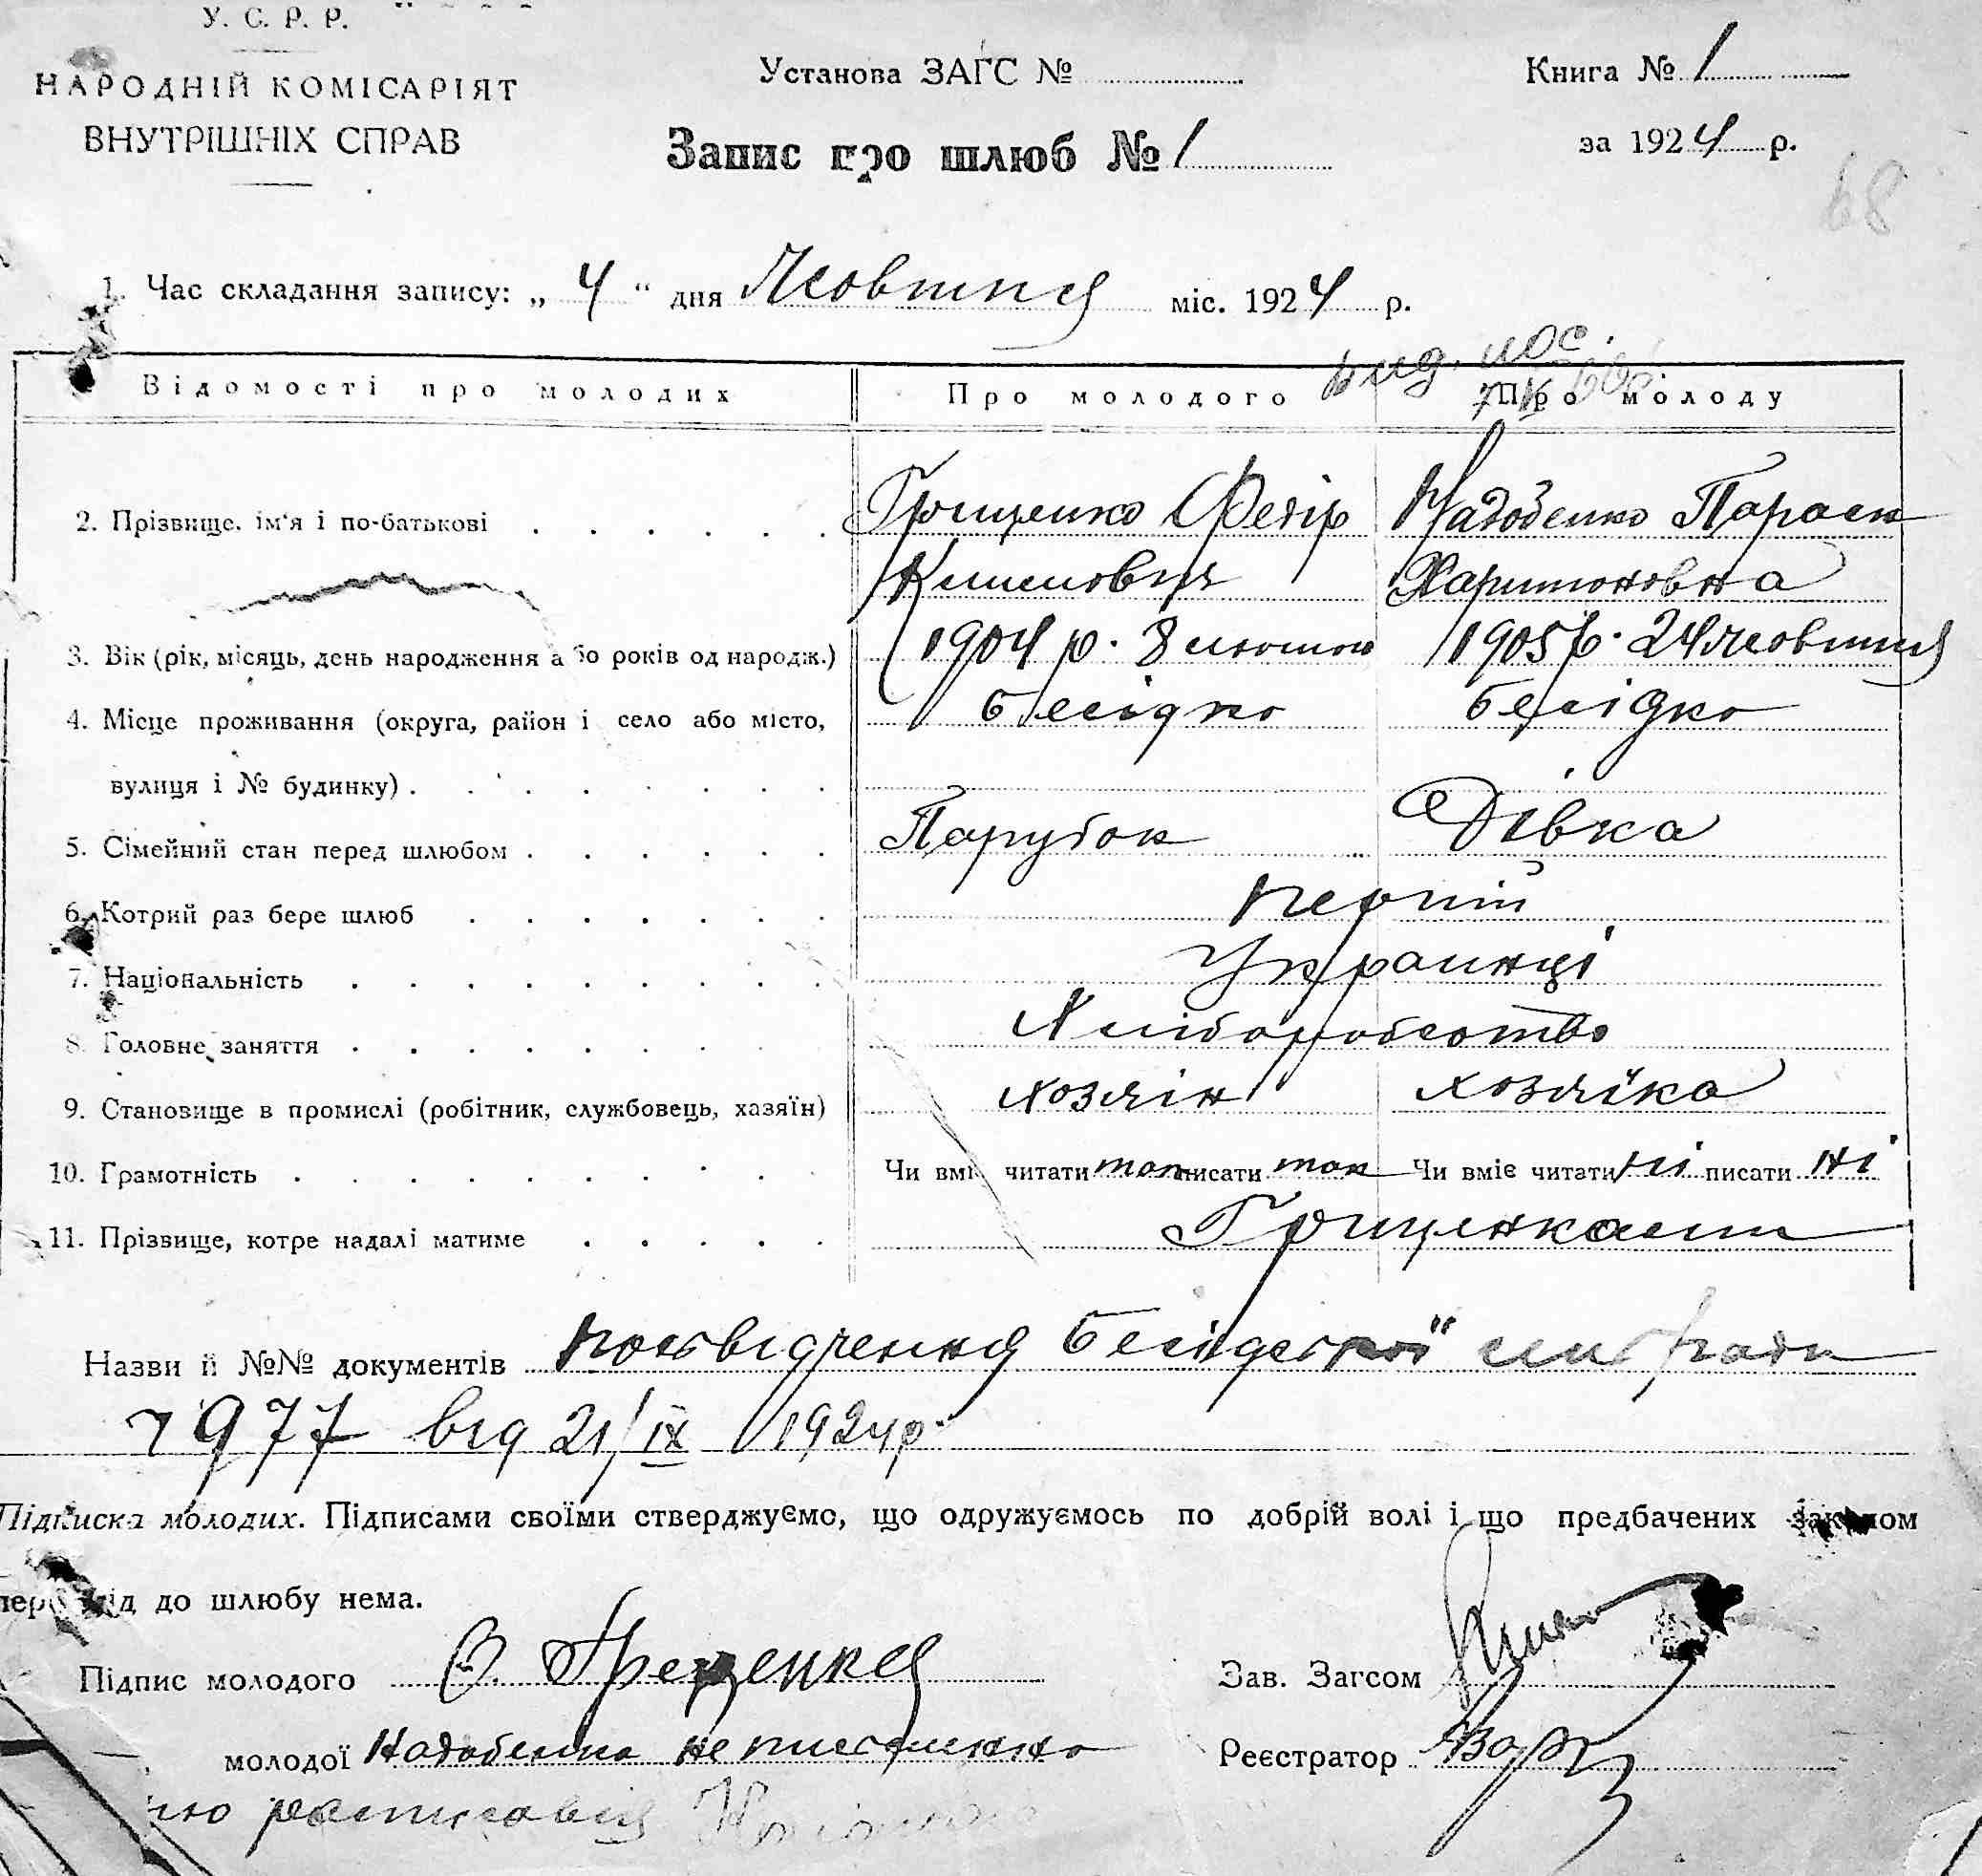 У. С. Р. Р.
НАРОДНІЙ КОМІСАРІЯТ
ВНУТРІШНІХ СПРАВ
Установа ЗАГС №
Запис про шлюб № 1
Книга № 1
за 1924 р.
68
1. Час складання запису: „ 4 “ дня Жовтня міс. 1924 р.
Відомості про молодих Про молодого Про молоду
2. Прізвище. ім'я і по-батькові Грищенко Федір Надобенко Параск
Климович Харитоновна
3. Вік (рік, місяць, день народження або років од народж.) 1904 р. 8 лютого 1905 р. 24 жовтня
4. Місце проживання (округа, район і село або місто, Бесідко Бесідко
вулиця і № будинку)
5. Сімейний стан перед шлюбом Парубок Дівка
6. Котрий раз бере шлюб перший
7. Національність Украинці
8. Головне заняття Хліборобство
9. Становище в промислі (робітник, службовець, хазяїн) хозяін хозяїка
10. Грамотність Чи вміє читати так писати так Чи вміє читати ні писати ні
11. Прізвище, котре надалі матиме Грищенками
Назви й №№ документів посвідчення Бесідської сильради
977 від 21/IX 1924 р.
Підписка молодих. Підписами своїми стверджуємо, що одружуємось по добрій волі і що предбачених законом
перешкід до шлюбу нема.
Підпис молодого Грещенко
молодої Надобенко неписьменна
росписався
Зав. Загсом
Реєстратор